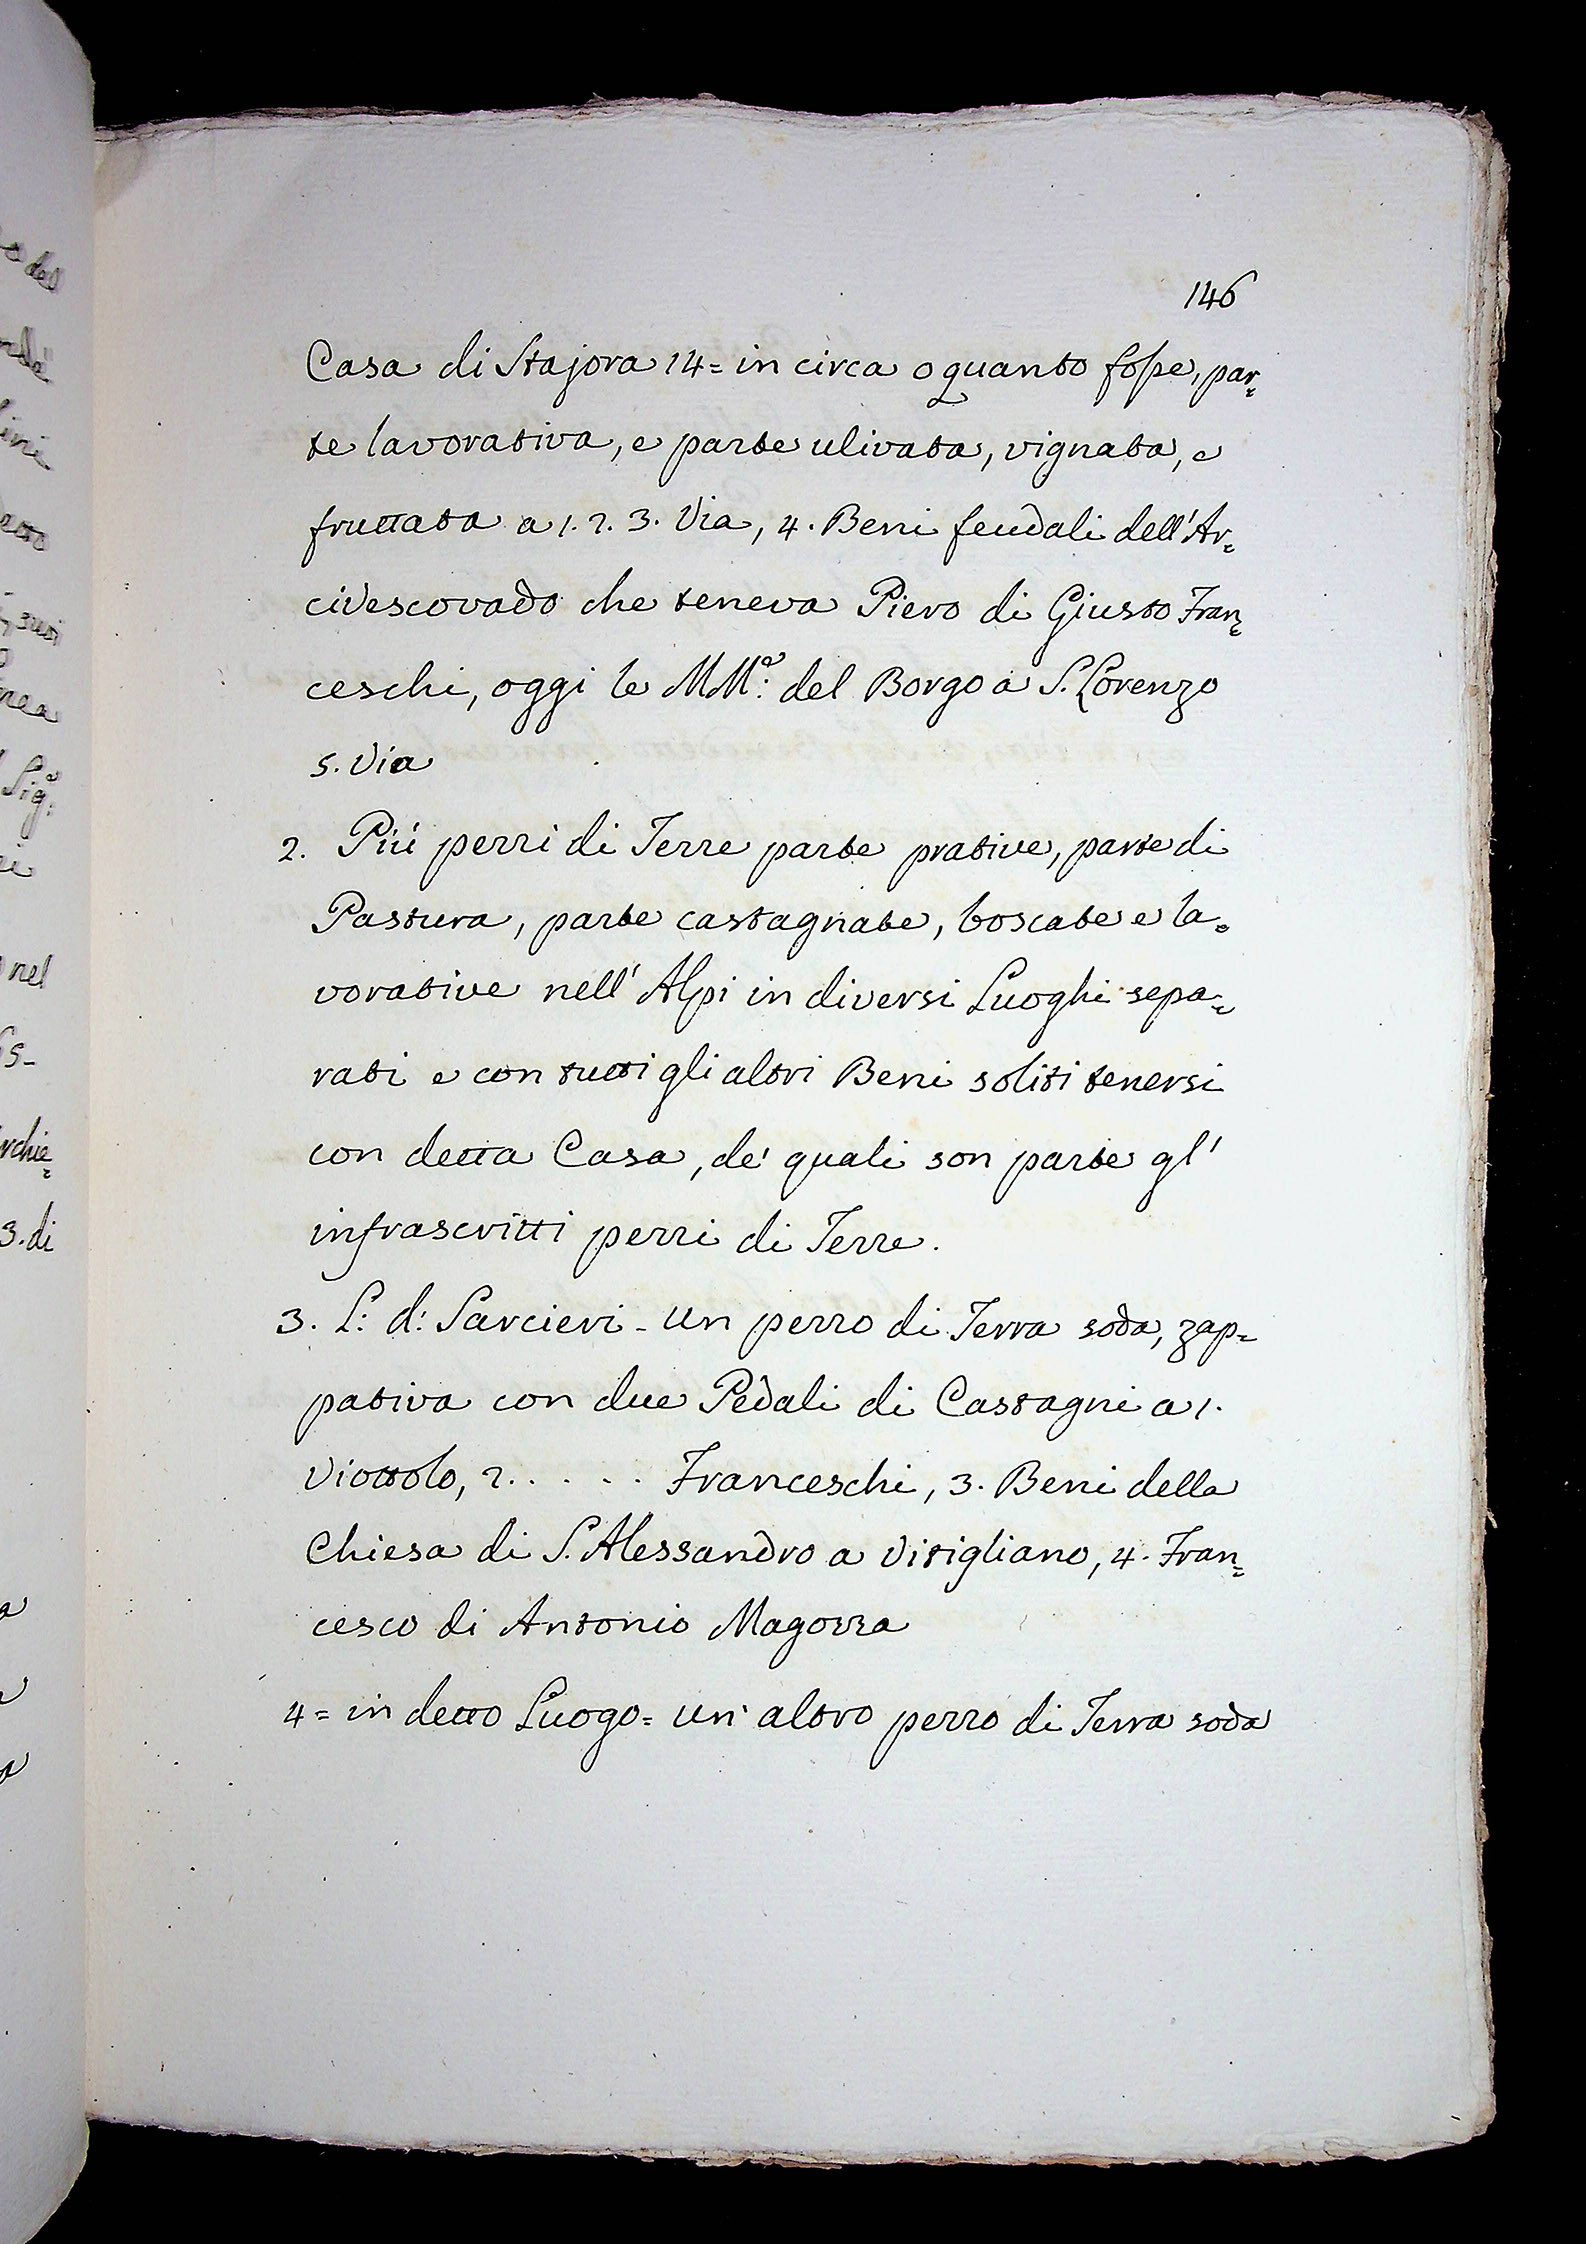 146
Casa di Stajora 14= in circa o quanto fosse, par=
te lavorativa, e parte ulivata, vignata, e
fruttata a 1. 2. 3. Via, 4. Beni feudali dell'Ar=
civescovado che teneva Piero di Giusto Fran=
ceschi, oggi le MM.e del Borgo a S. Lorenzo
5. Via
2. Piú pezzi di Terre parte prative, parte di
Pastura, parte castagnate, boscate e la=
vorative nell'Alpi in diversi Luoghi sepa=
rati e con tutti gli altri Beni soliti tenersi
con detta Casa, de' quali son parte gl'
infrascritti pezzi di Terre.
3. L: d: Sarcieri - Un pezzo di Terra soda, zap=
pativa con due Pedali di Castagni a 1.
Viottolo, 2. . . . . . Franceschi, 3. Beni della
Chiesa di S. Alessandro a Vitigliano, 4. Fran=
cesco di Antonio Magozza
4= in detto Luogo= Un' altro pezzo di Terra soda